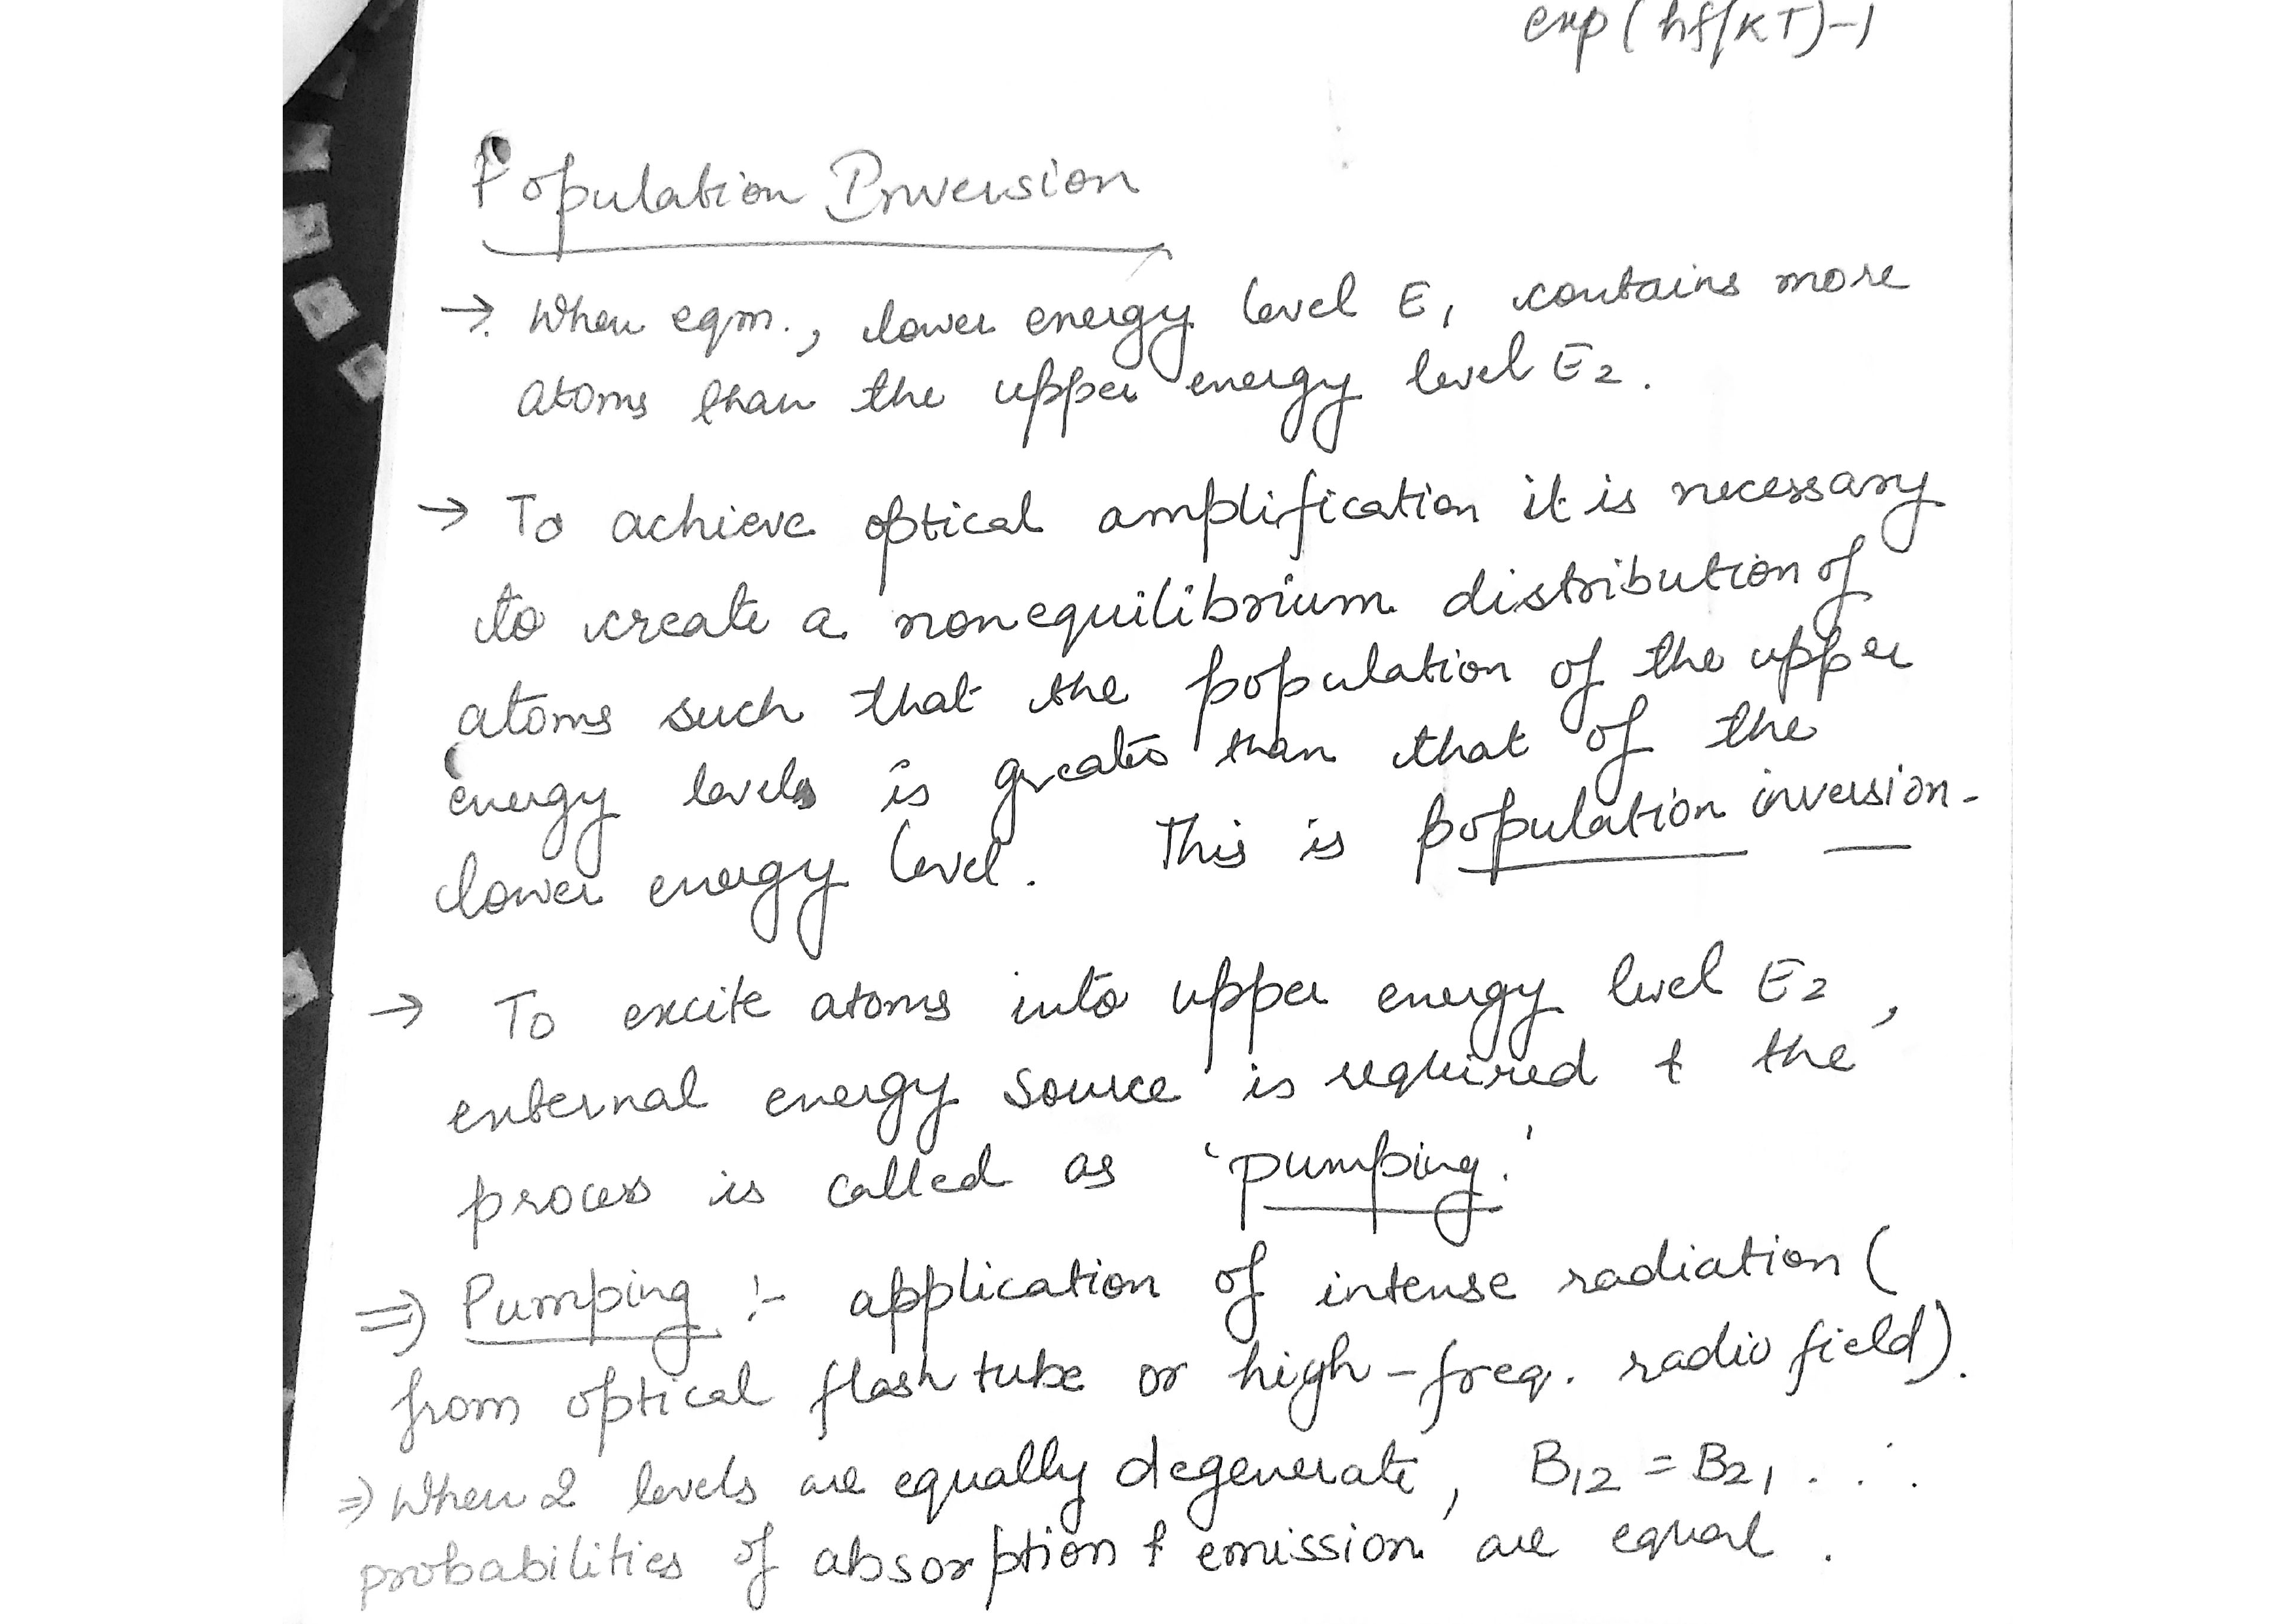 exp(hf/KT)-1
Population Inversion
→ When eqm., lower energy level E1 contains more
atoms than the upper energy level E2.
→ To achieve optical amplification it is necessary
to create a nonequilibrium distribution of
atoms such that the population of the upper
energy levels is greater than that of the
lower energy level. This is population inversion.
→ To excite atoms into upper energy level E2,
external energy source is required & the
process is called as 'pumping.'
⇒ Pumping :- application of intense radiation (
from optical flash tube or high-freq. radio field).
⇒ When 2 levels are equally degenerate, B12 = B21. ∴
probabilities of absorption & emission are equal.